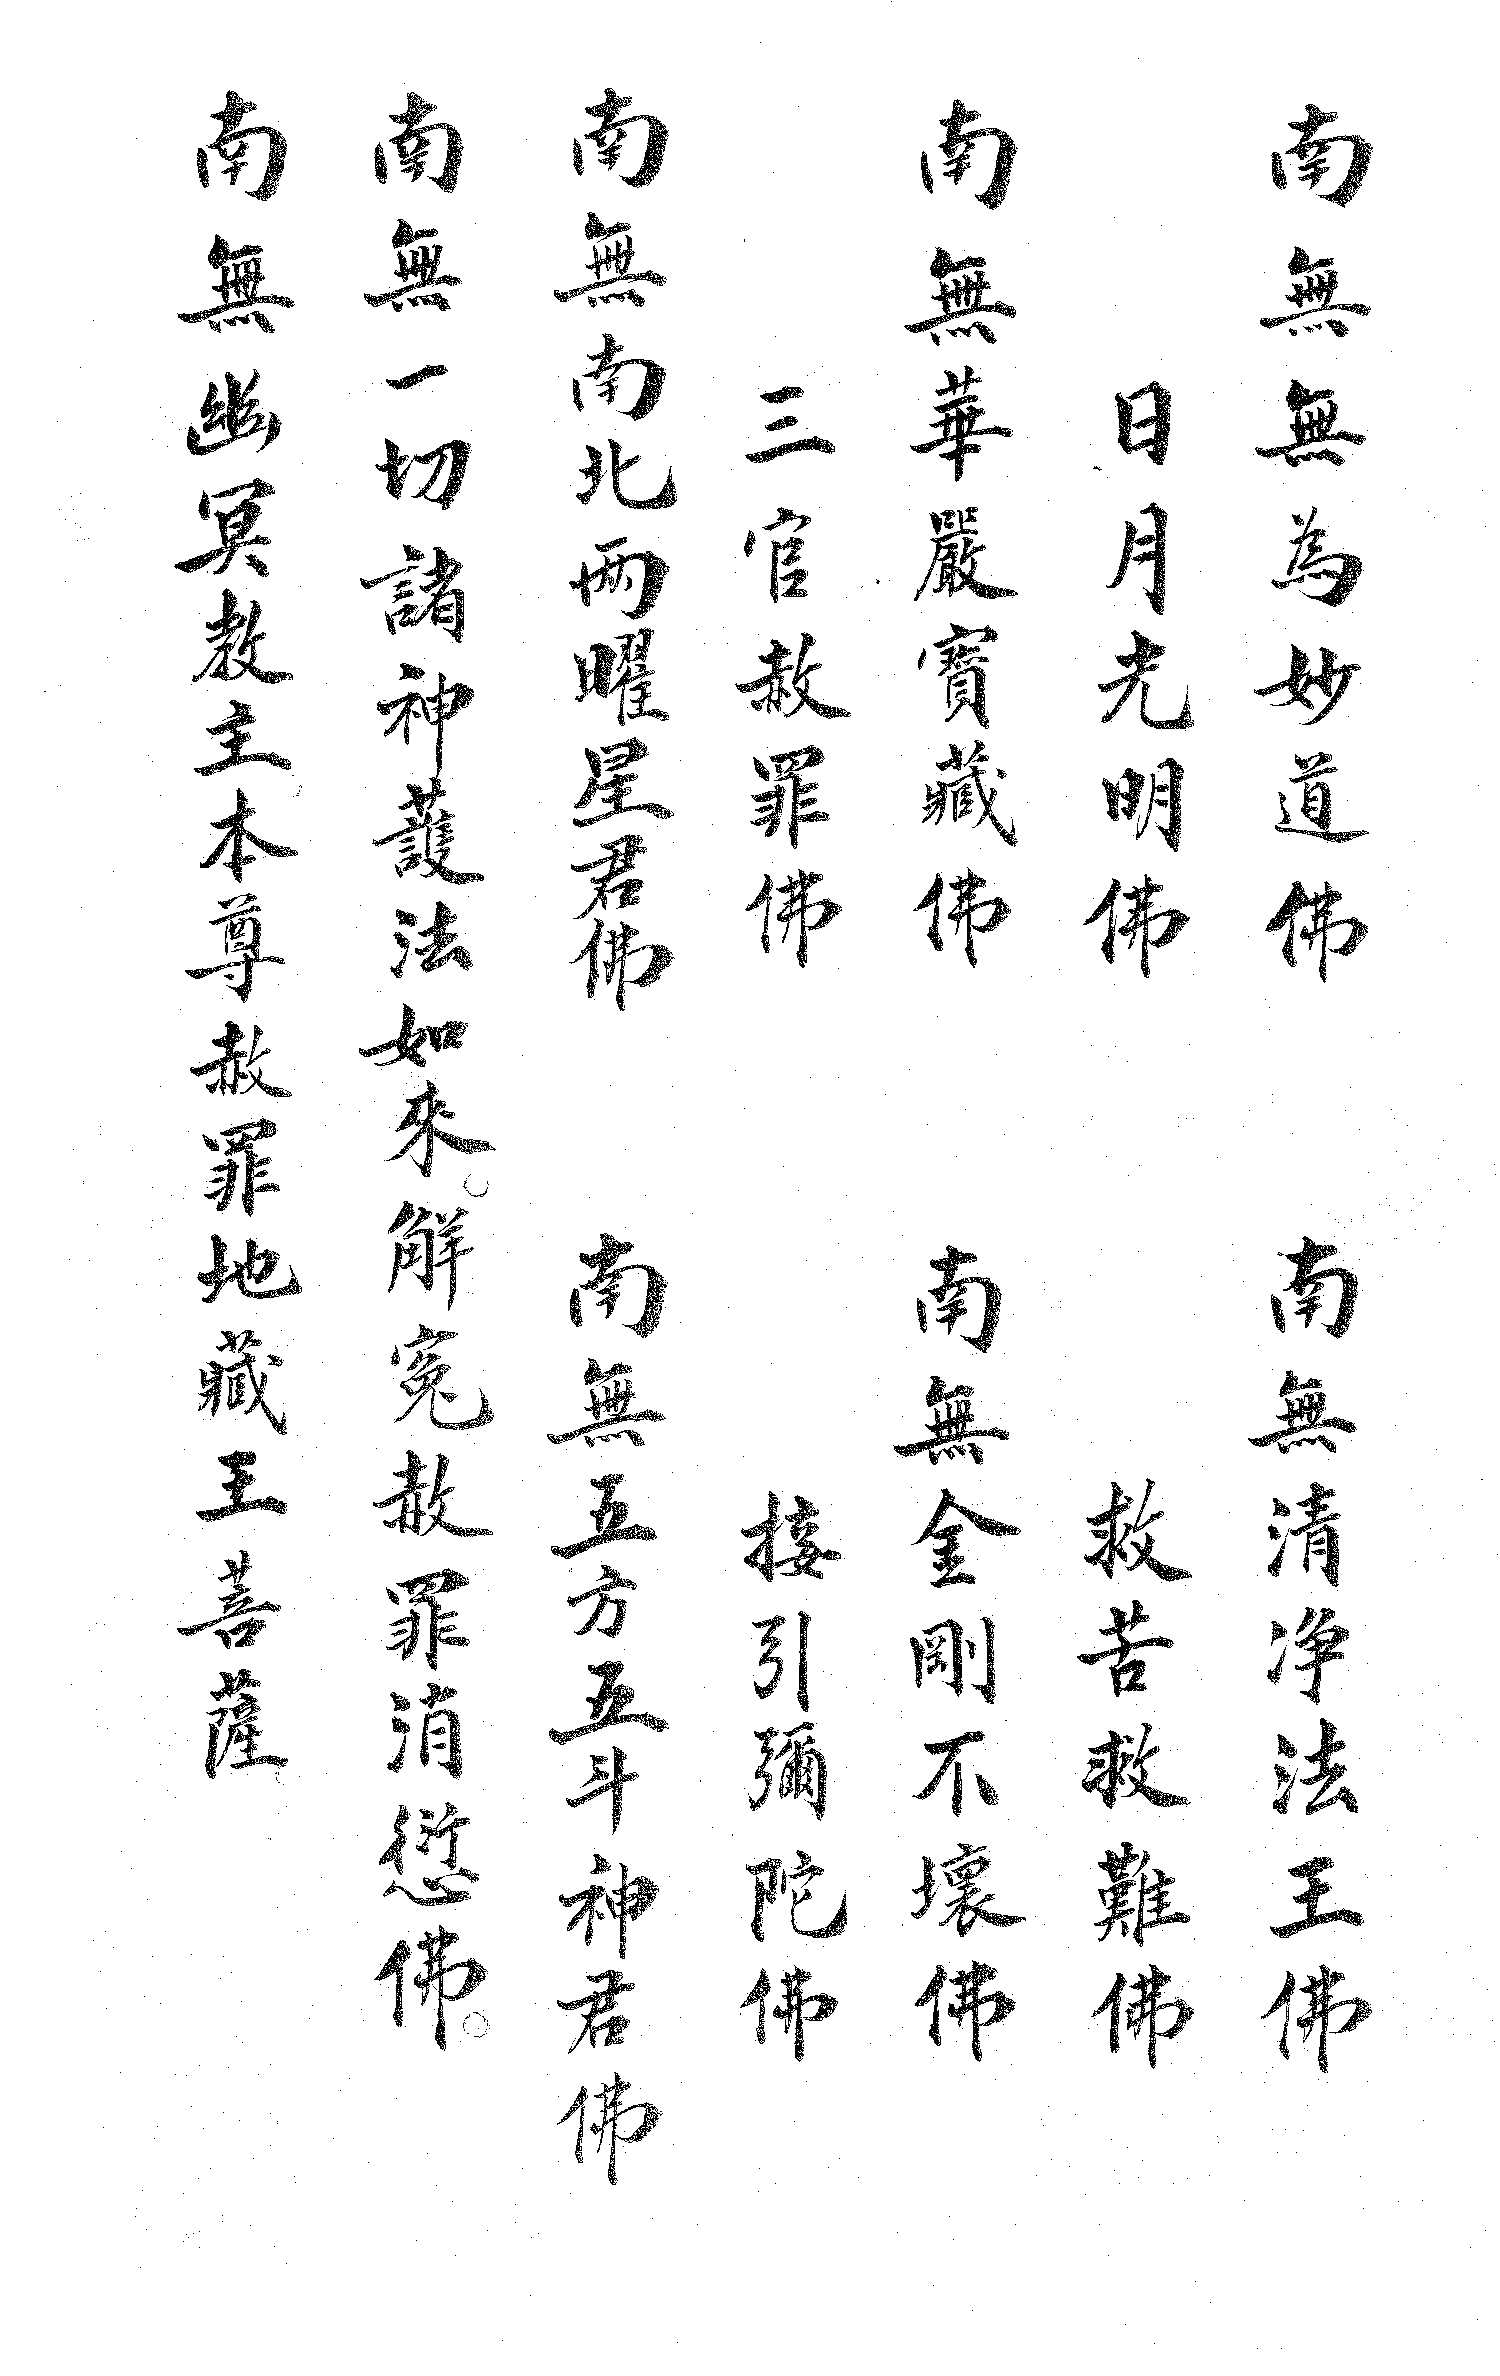 南無無為妙道佛　南無清净法王佛
日月光明佛　救苦救難佛
南無華嚴寶藏佛　南無金剛不壞佛
三官赦罪佛　接引彌陀佛
南無南北兩曜星君佛　南無五方五斗神君佛
南無一切諸神護法如來。解冤赦罪消愆佛。
南無幽冥教主本尊赦罪地藏王菩薩